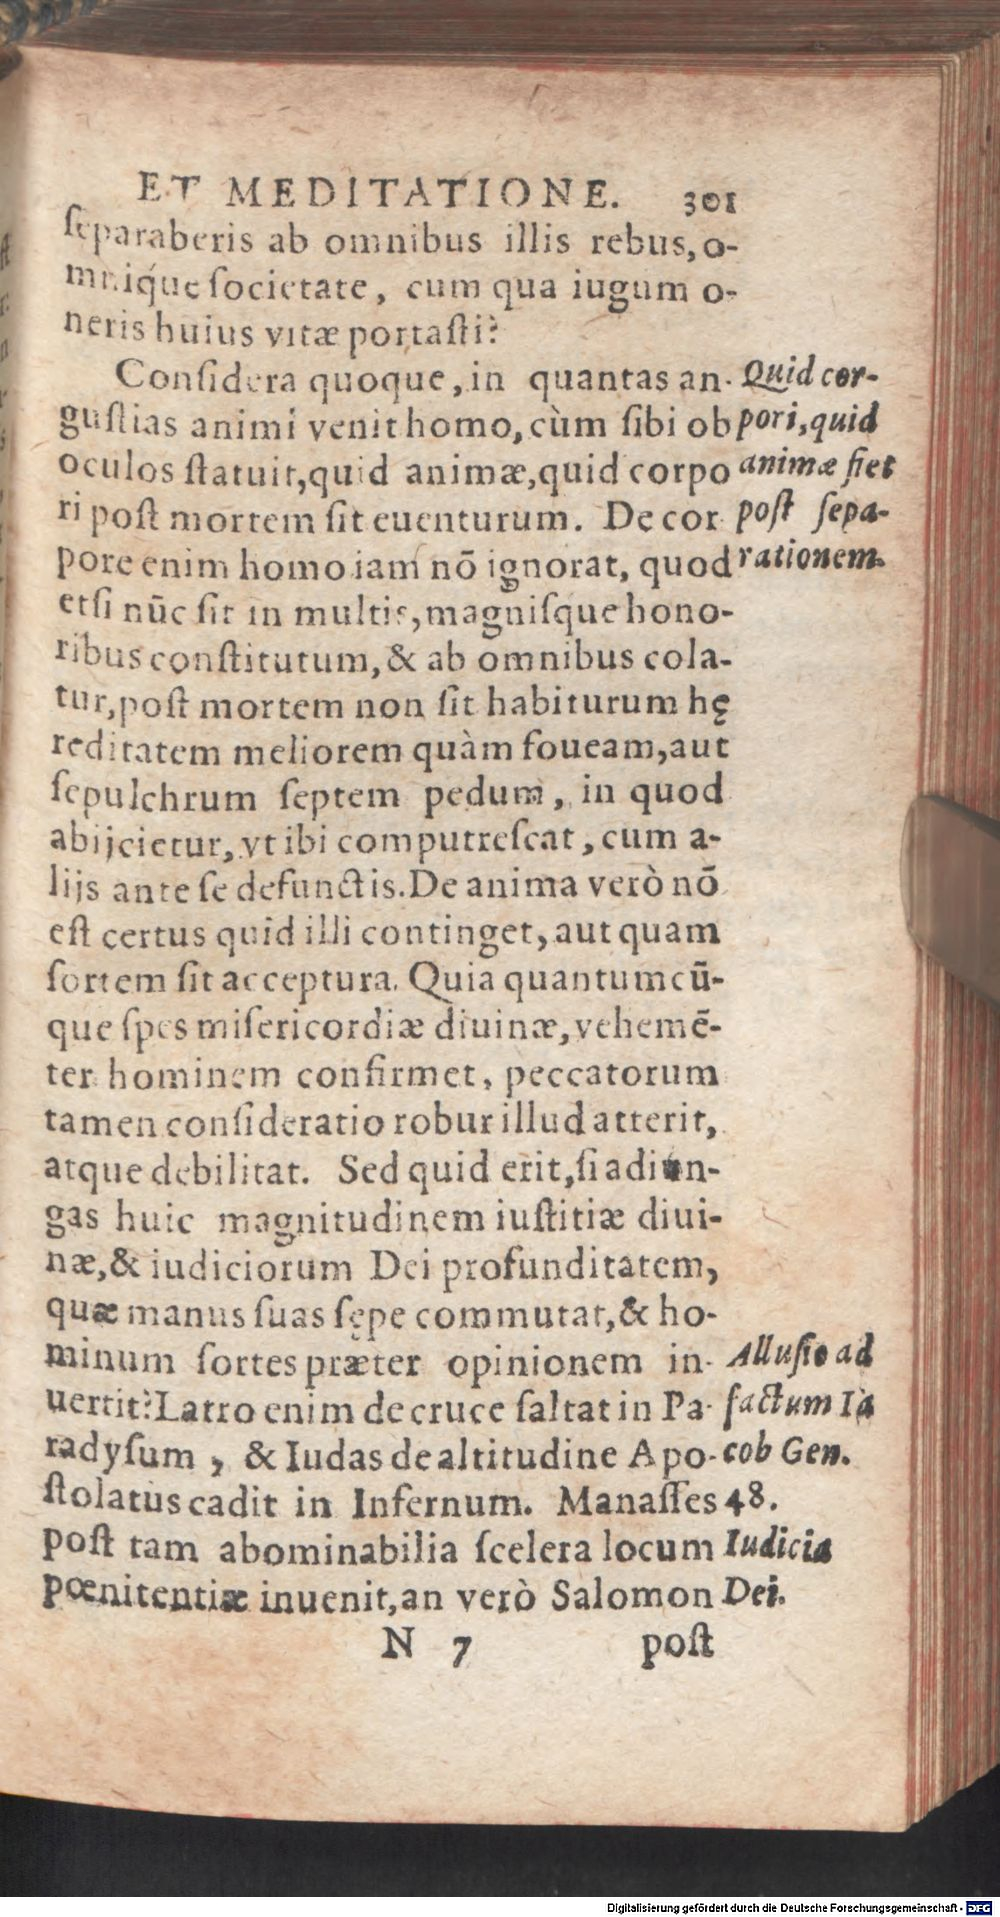 ET MEDITATIONE. 301
ſeparaberis ab omnibus illis rebus, o-
mniq́ue ſocietate, cum qua iugum o-
neris huius vitæ portaſti?
Conſidera quoque, in quantas an-
guſtias animi venit homo, cùm ſibi ob
oculos ſtatuit, quid animæ, quid corpo
ri poſt mortem ſit euenturum. De cor
pore enim homo iam nō ignorat, quod
etſi nūc ſit in multis, magniſque hono-
ribus conſtitutum, & ab omnibus cola-
tur, poſt mortem non ſit habiturum hę
reditatem meliorem quàm foueam, aut
ſepulchrum ſeptem pedum, in quod
abijcietur, vt ibi computreſcat, cum a-
lijs ante ſe defunctis. De anima verò nō
eſt certus quid illi continget, aut quam
ſortem ſit acceptura. Quia quantumcū-
que ſpes miſericordiæ diuinæ, vehemē-
ter hominem confirmet, peccatorum
tamen conſideratio robur illud atterit,
atque debilitat. Sed quid erit, ſi adiun-
gas huic magnitudinem iuſtitiæ diui-
næ, & iudiciorum Dei profunditatem,
quæ manus ſuas ſępe commutat, & ho-
minum ſortes præter opinionem in-
uertit? Latro enim de cruce ſaltat in Pa-
radyſum, & Iudas de altitudine Apo-
ſtolatus cadit in Infernum. Manaſſes
poſt tam abominabilia ſcelera locum
pœnitentiæ inuenit, an verò Salomon
N 7 poſt
Quid cor-
pori, quid
animæ fiet
poſt ſepa-
rationem.
Alluſio ad
factum Ia
cob Gen.
48.
Iudicia
Dei.
Digitalisierung gefördert durch die Deutsche Forschungsgemeinschaft - DFG